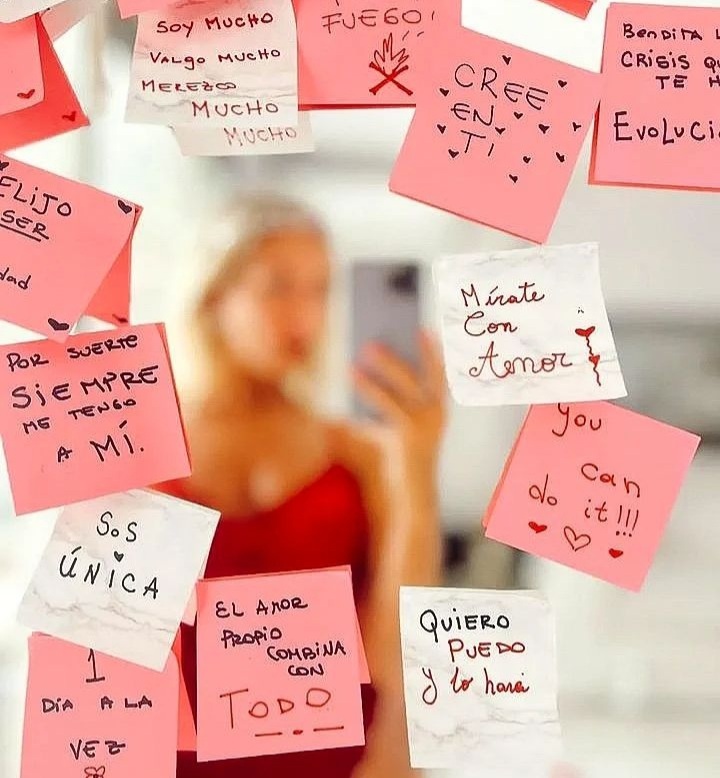 SOY MUCHO
VALGO MUCHO
MEREZCO
MUCHO
MUCHO
FUEGO!
CREE
EN
TI
BENDITA
CRISIS
TE
EVOLUCI
ELIJO
SER
dad
Mírate
Con
Amor
POR SUERTE
SIEMPRE
ME TENGO
A MÍ.
you
can
do it!!!
SOS
ÚNICA
EL AMOR
PROPIO
COMBINA
CON
TODO
QUIERO
PUEDO
y lo haré
1
DÍA A LA
VEZ